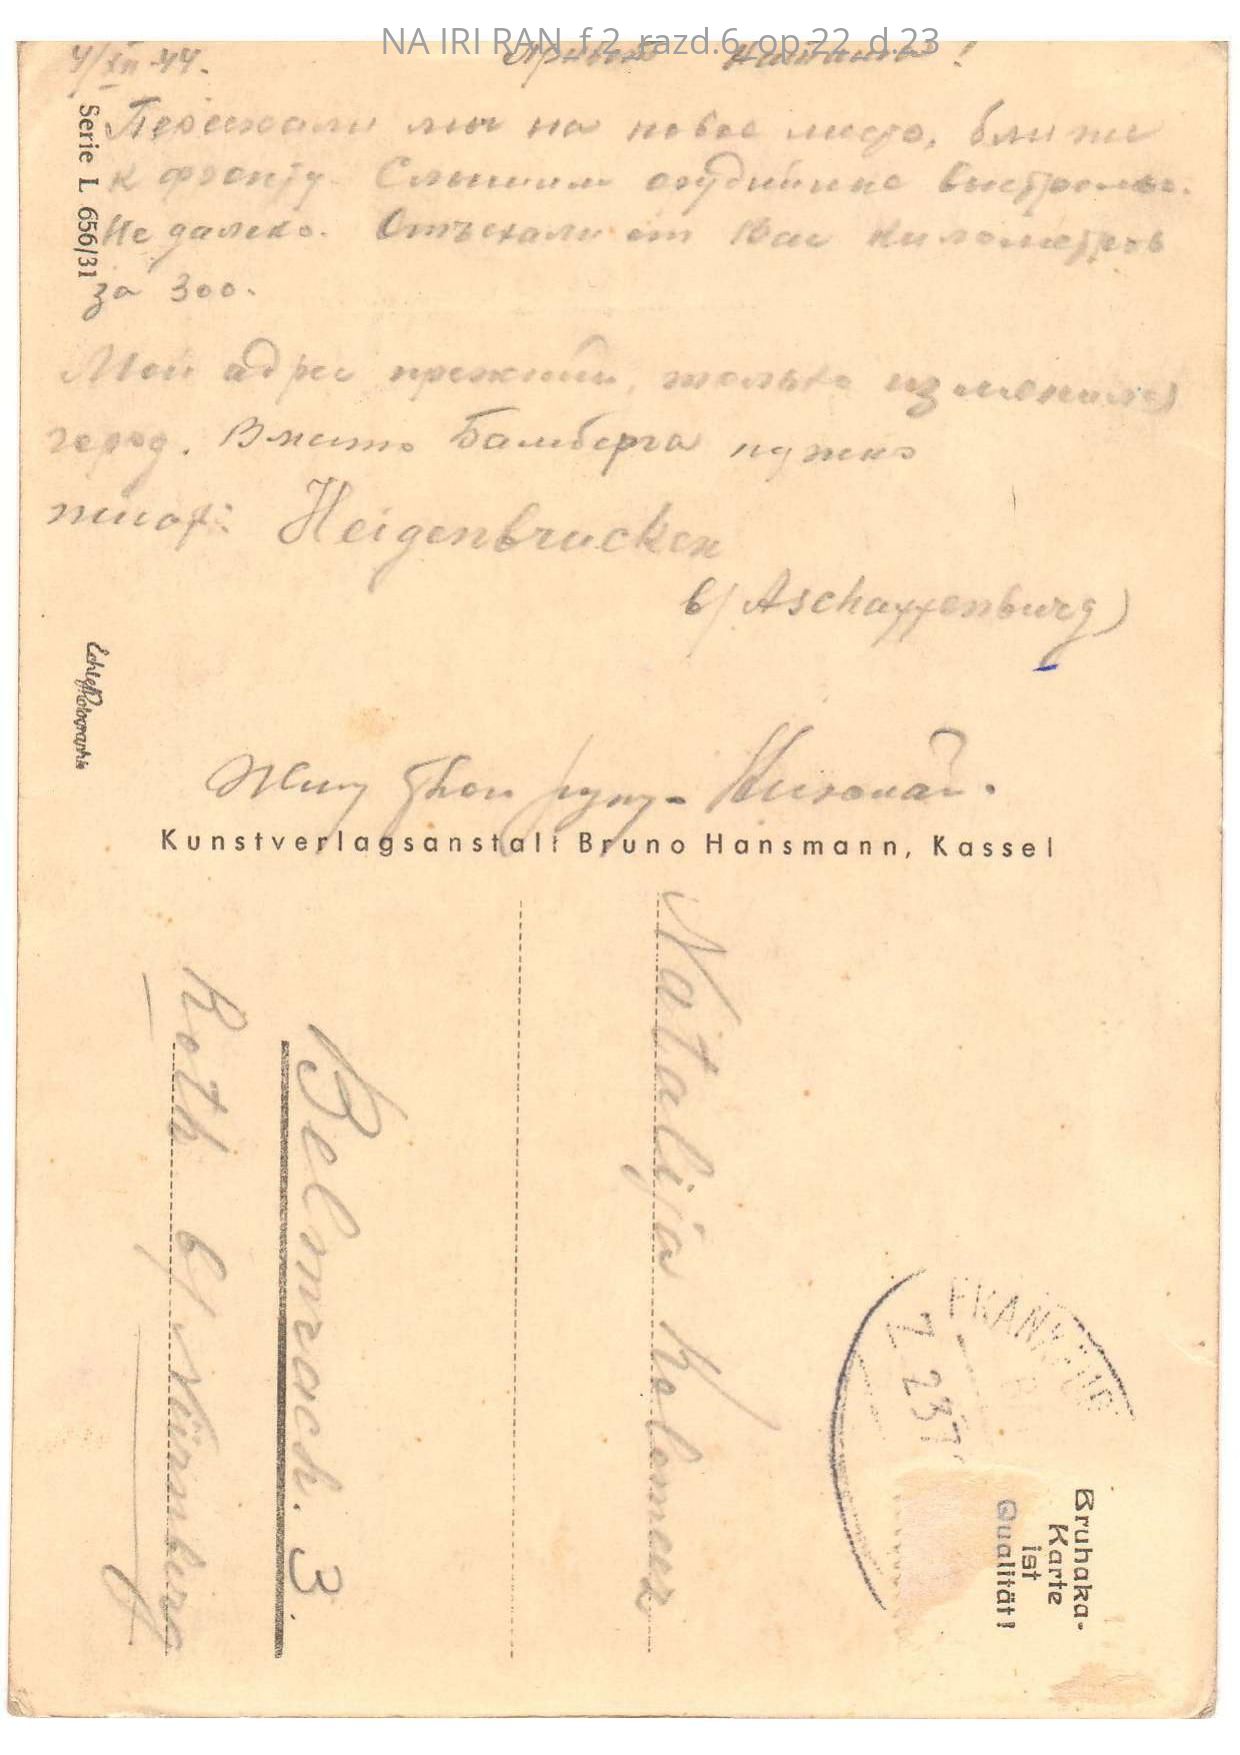 NA IRI RAN f.2 razd.6 op.22 d.23
4/XII 44. Привет Наташа!
Переехали мы на новое место, ближе
к фронту. Слышим орудийные выстрелы.
Не далеко. Отъехали от Вас километров
за 300.
Мой адрес прежний, только изменился
город. Вместо Бамберга нужно
писать: Heigenbrucken
b/ Aschaffenburg)
Жму твою руку - Николай.
Serie L 656/31
Echte Photographie
Kunstverlagsanstalt Bruno Hansmann, Kassel
Bruhaka-
Karte
ist
Qualität!
FRANKFUR
Natalija Kolomeez
Belmrach. 3.
Roth b/ Nürnberg